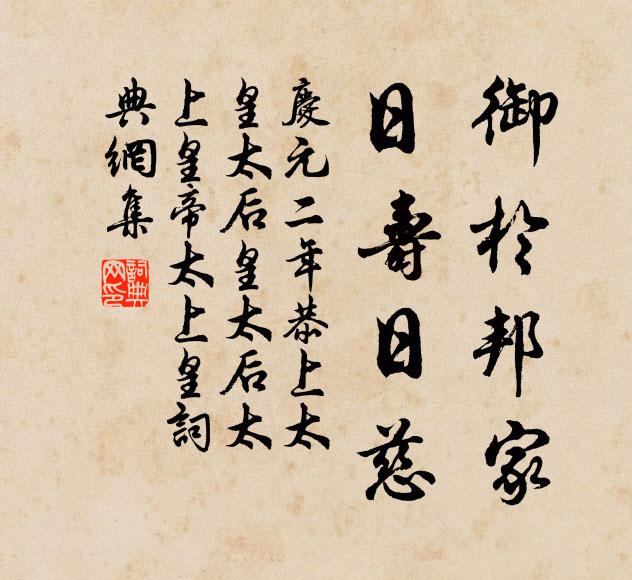 御於邦家
日壽日慈
慶元二年恭上太
皇太后皇太后太
上皇帝太上皇詞
典網集
詞典網印